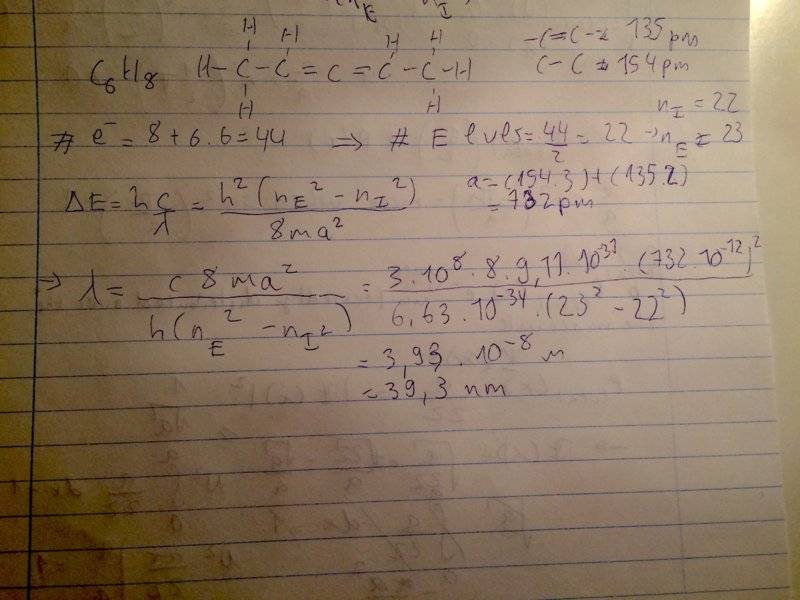 n_E n_I
H H H H
C6H8 H-C-C=C=C-C-H
H H
-C=C-= 135 pm
C-C = 154 pm
n_I = 22
# e⁻ = 8 + 6.6 = 44 => # E lvls = 44/2 = 22 → n_E = 23
a = (154.3) + (135.2)
= 732 pm
ΔE = h c/λ = h² (n_E² - n_I²) / 8ma²
=> λ = c 8 ma² / h(n_E² - n_I²) = 3.10⁸.8.9,11.10⁻³¹.(732.10⁻¹²)² / 6,63.10⁻³⁴.(23² - 22²)
= 3,93.10⁻⁸ m
= 39,3 nm